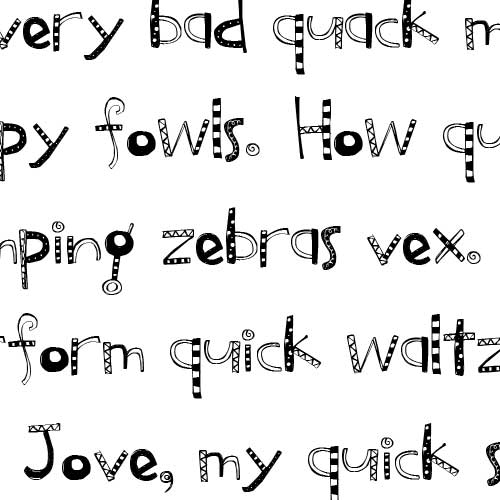 very bad quack m
py fowls. How qu
mping zebras vex.
form quick waltz
Jove, my quick s